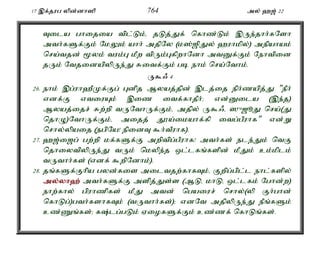 17 இக்தரப லின்னாஸி 764 அல் ஹஜ் 22
வுடைய பாதையை விட்டும், தடுத்துக் கொண்டும் இருந்தார்களோ
அவர்களுக்கும் மேலும் யார் அதிலே (மஸ்ஜிதுல் ஹராமில்) அநியாயம்
செய்வதன் மூலம் வரம்பு மீற விரும்புகிறானோ அவனுக்கும் நோவினை
தரும் வேதனையிலிருந்து சுவைக்கும் படி நாம் செய்வோம்.
ருகூஃ 4
26. நாம் இப்ராஹீமுக்குப் புனித ஆலயத்தின் இடத்தை நிர்ணயித்து "நீர்
எனக்கு எவரையும் இணை வைக்காதீர்; என்னுடைய (இந்த)
ஆலயத்தைச் சுற்றி வருவோருக்கும், அதில் ருகூஃ, ஸுஜூது செய்(து
தொழு)வோருக்கும், அதைத் தூய்மையாக்கி வைப்பீராக" என்று
சொல்லியதை (நபியே! நினைவு கூர்வீராக).
27. ஹஜ்ஜைப் பற்றி மக்களுக்கு அறிவிப்பீராக! அவர்கள் நடந்தும் வெகு
தொலைவிலிருந்து வரும் மெலிந்த ஒட்டகங்களின் மீதும் உம்மிடம்
வருவார்கள் (எனக் கூறினோம்).
28. தங்களுக்குரிய பலன்களை அடைவதற்காகவும்; குறிப்பிட்ட நாட்களில்
அல்லாஹ் அவர்களுக்கு அளித்துள்ள (ஆடு, மாடு, ஒட்டகம் போன்ற)
நாற்கால் பிராணிகள் மீது அவன் பெயரைச் சொல்(லி குர்பான்
கொடுப்)பவர்களாகவும் (வருவார்கள்); எனவே அதிலிருந்து நீங்களும்
உண்ணுங்கள்; கஷ்டப்படும் ஏழைகளுக்கும் உண்ணக் கொடுங்கள்.